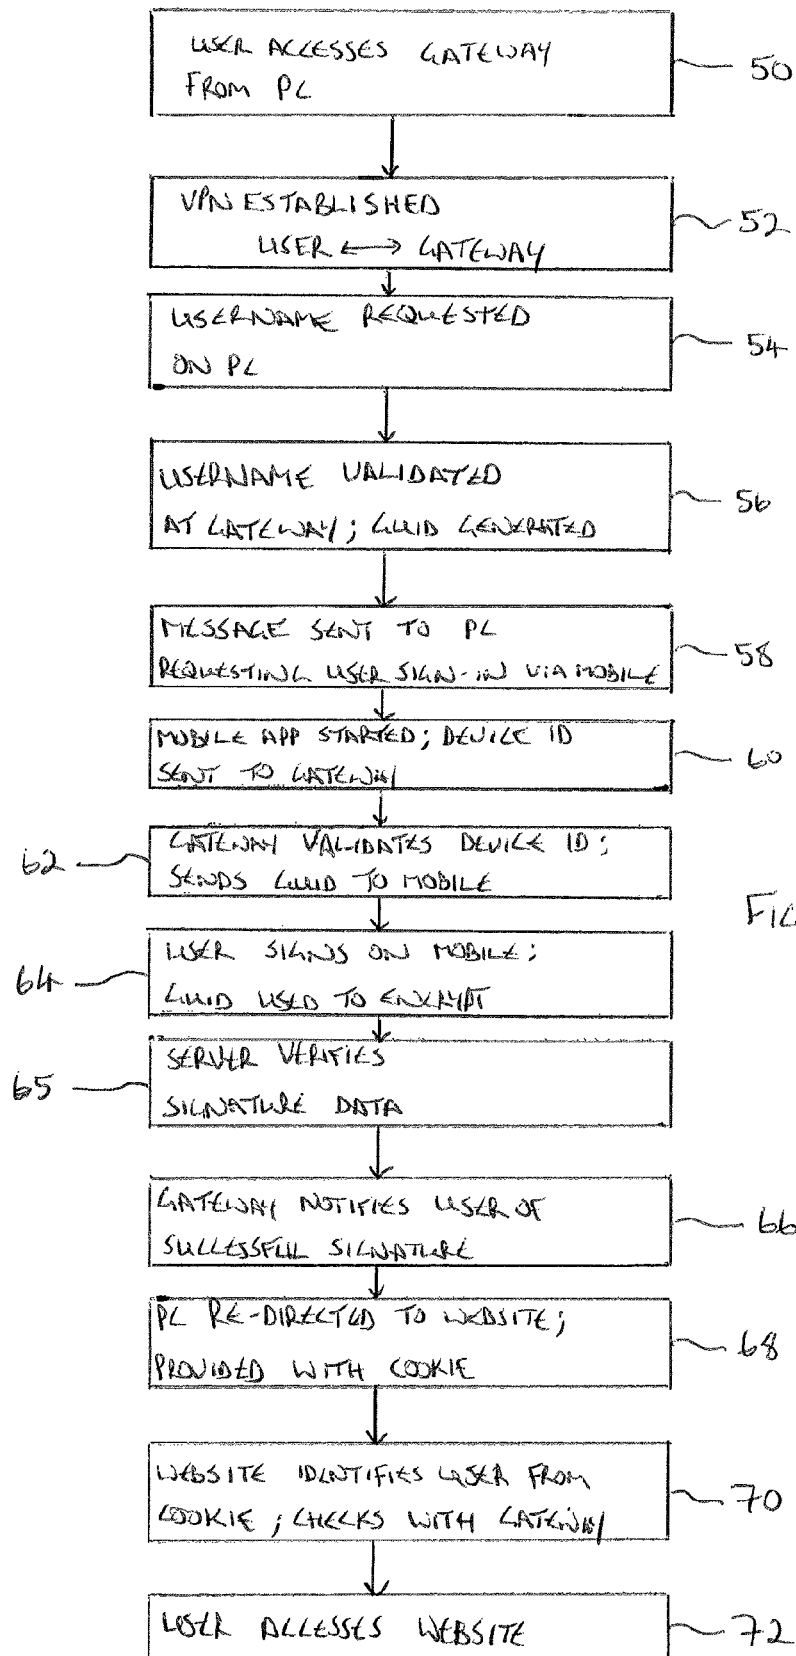 USER ACCESSES GATEWAY
FROM PC
50
VPN ESTABLISHED
USER ↔ GATEWAY
52
USERNAME REQUESTED
ON PC
54
USERNAME VALIDATED
AT GATEWAY; GUID GENERATED
56
MESSAGE SENT TO PC
REQUESTING USER SIGN-IN VIA MOBILE
58
MOBILE APP STARTED; DEVICE ID
SENT TO GATEWAY
60
62
GATEWAY VALIDATES DEVICE ID;
SENDS GUID TO MOBILE
FIG
64
USER SIGNS ON MOBILE;
GUID USED TO ENCRYPT
65
SERVER VERIFIES
SIGNATURE DATA
GATEWAY NOTIFIES USER OF
SUCCESSFUL SIGNATURE
66
PC RE-DIRECTED TO WEBSITE;
PROVIDED WITH COOKIE
68
WEBSITE IDENTIFIES USER FROM
COOKIE; CHECKS WITH GATEWAY
70
USER ACCESSES WEBSITE
72